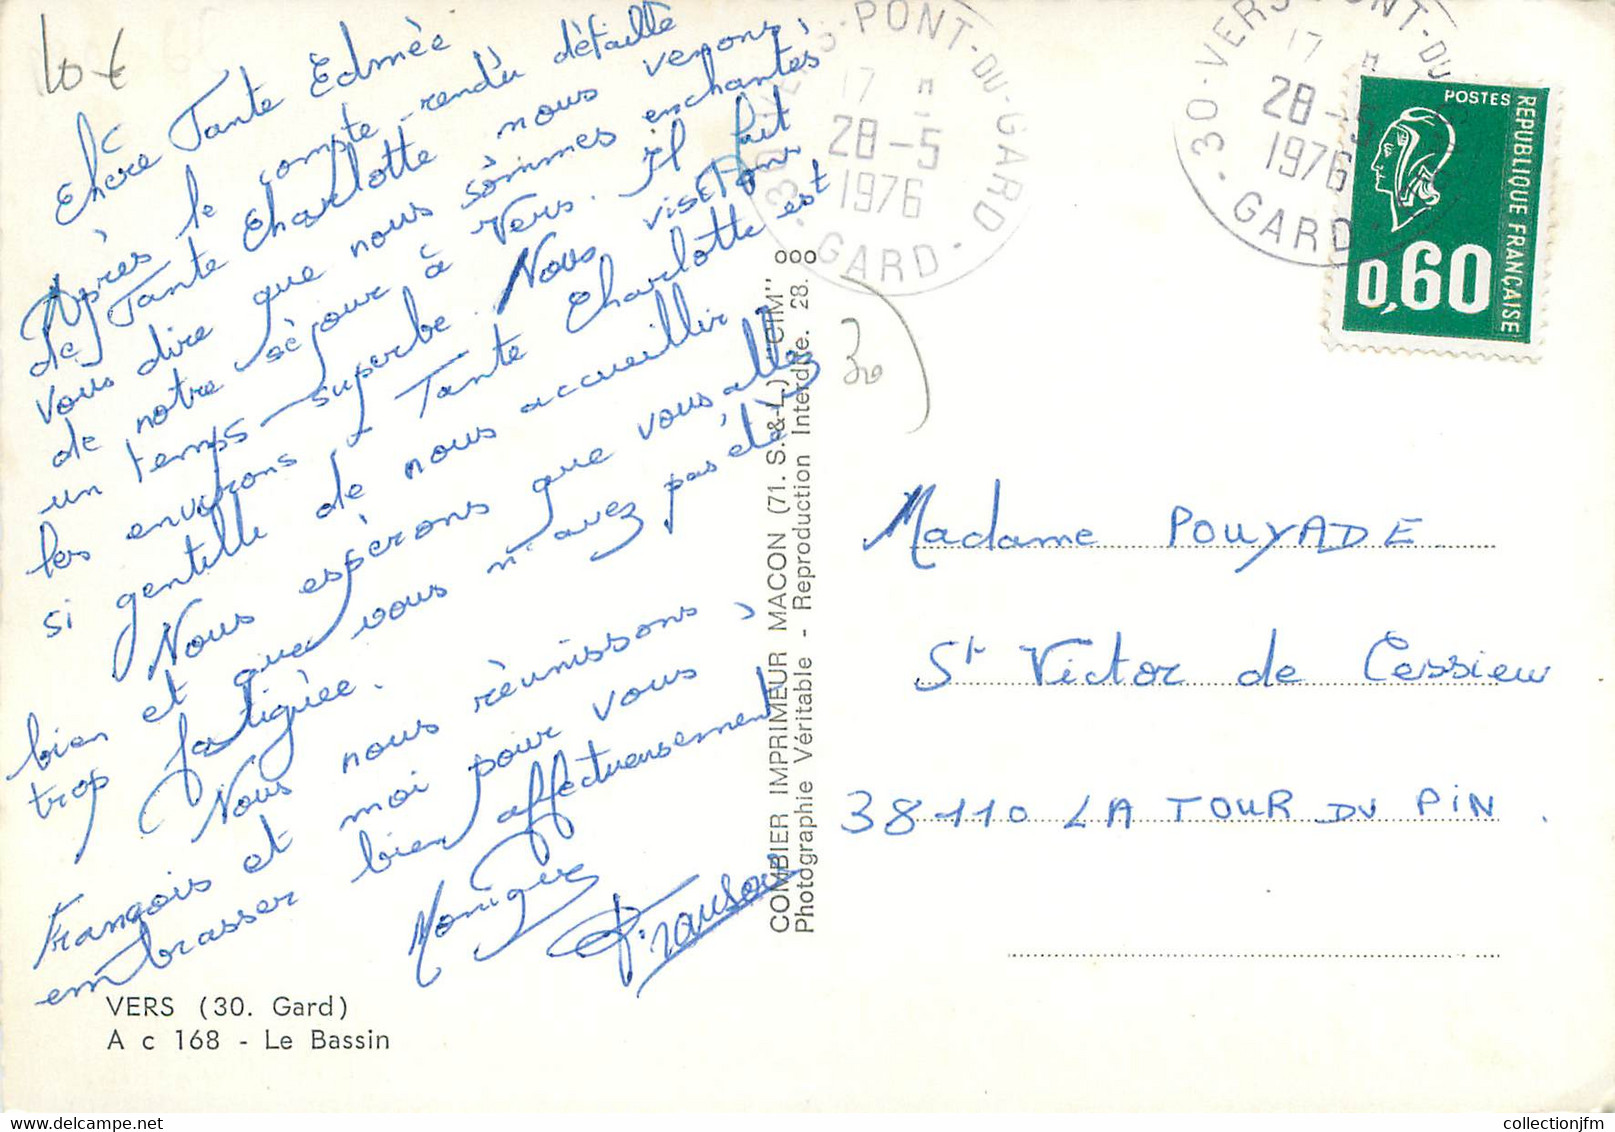 10 €
Chère Tante Edmée
Après le compte-rendu détaillé
de Tante Charlotte nous venons
vous dire que nous sommes enchantés
de notre séjour à Vers. Il fait
un temps superbe. Nous visitons
les environs. Tante Charlotte est
si gentille de nous accueillir
Nous espérons que vous allez
bien et que vous n'avez pas été
trop fatiguée.
Nous nous réunissons,
François et moi pour vous
embrasser bien affectueusement
Monique
François
VERS (30. Gard)
A c 168 - Le Bassin
COMBIER IMPRIMEUR MACON (71. S.-&-L.) "CIM"
Photographie Véritable - Reproduction Interdite. 28.
30 VERS-PONT-DU-GARD
17 H
28-5
1976
GARD
30-VERS-PONT-DU
17 H
28-5
1976
GARD
POSTES
REPUBLIQUE FRANÇAISE
0,60
30
Madame POUYADE
St Victor de Cessieu
38110 LA TOUR DU PIN.
collectionjfm